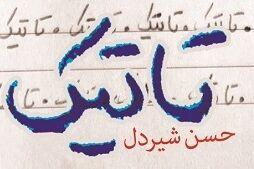 تاتیک . تاتیک . تاتیک . تاتیک .
تاتیک
حسن شیردل